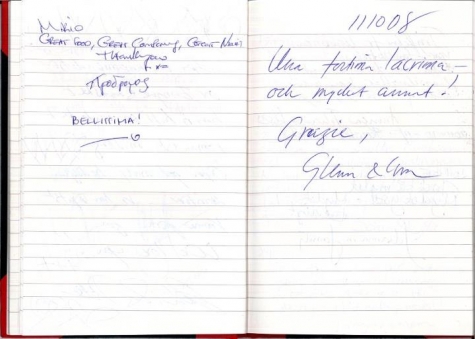 MIRIO
GREAT FOOD, GREAT COMPANY, GREAT NIGHT
Thank you
Πρόδρομος
BELLISSIMA!
111008
Una fortima lacrima –
och mycket annat!
Grazie,
Glenn &